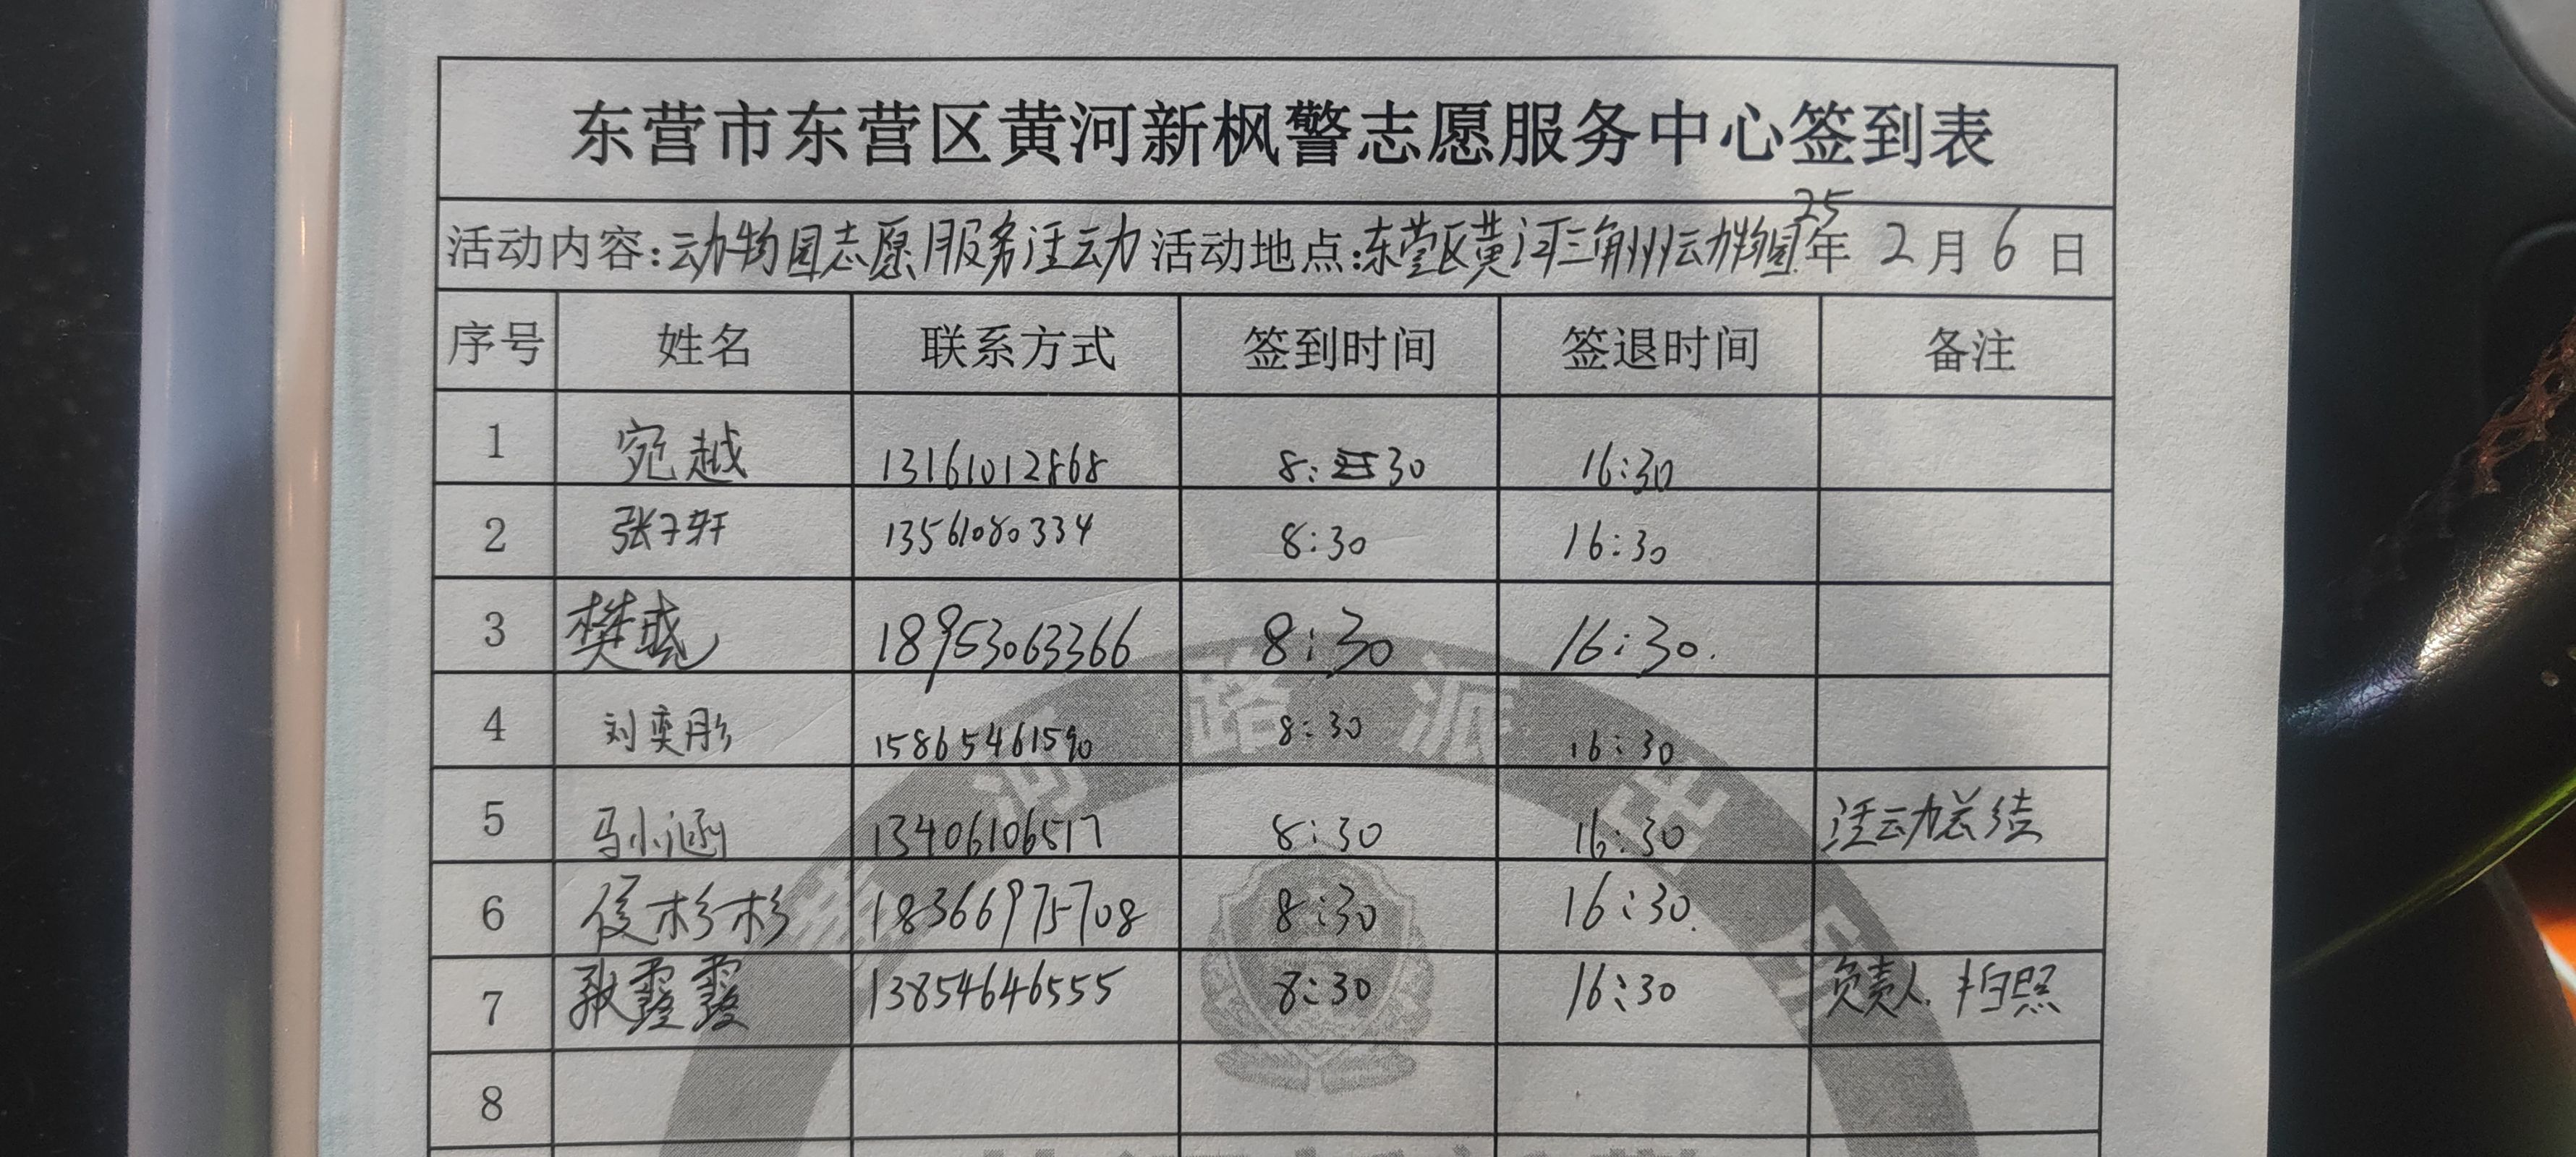 东营市东营区黄河新枫警志愿服务中心签到表
活动内容:动物园志愿服务活动 活动地点:东营区黄河三角洲动物园 25年 2月6日
序号 姓名 联系方式 签到时间 签退时间 备注
1 宛越 13161012868 8:30 16:30
2 张子轩 13561080334 8:30 16:30
3 樊彧 18953063366 8:30 16:30.
4 刘奕彤 15865461590 8:30 16:30
5 马小涵 13406106517 8:30 16:30 活动总结
6 侯杉杉 18366975708 8:30 16:30.
7 张霞霞 13854646555 8:30 16:30 负责人.拍照
8
河路派出所